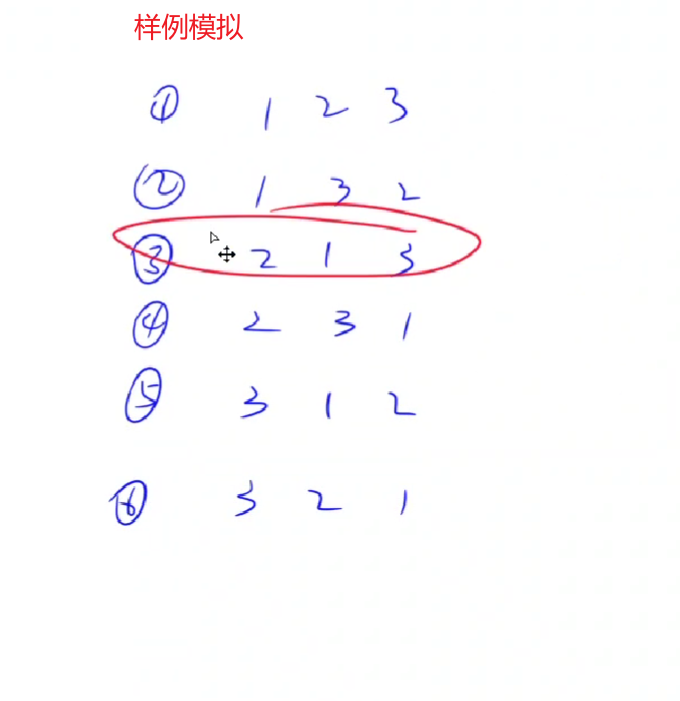 样例模拟
① 1 2 3
② 1 3 2
③ 2 1 3
④ 2 3 1
⑤ 3 1 2
⑥ 3 2 1